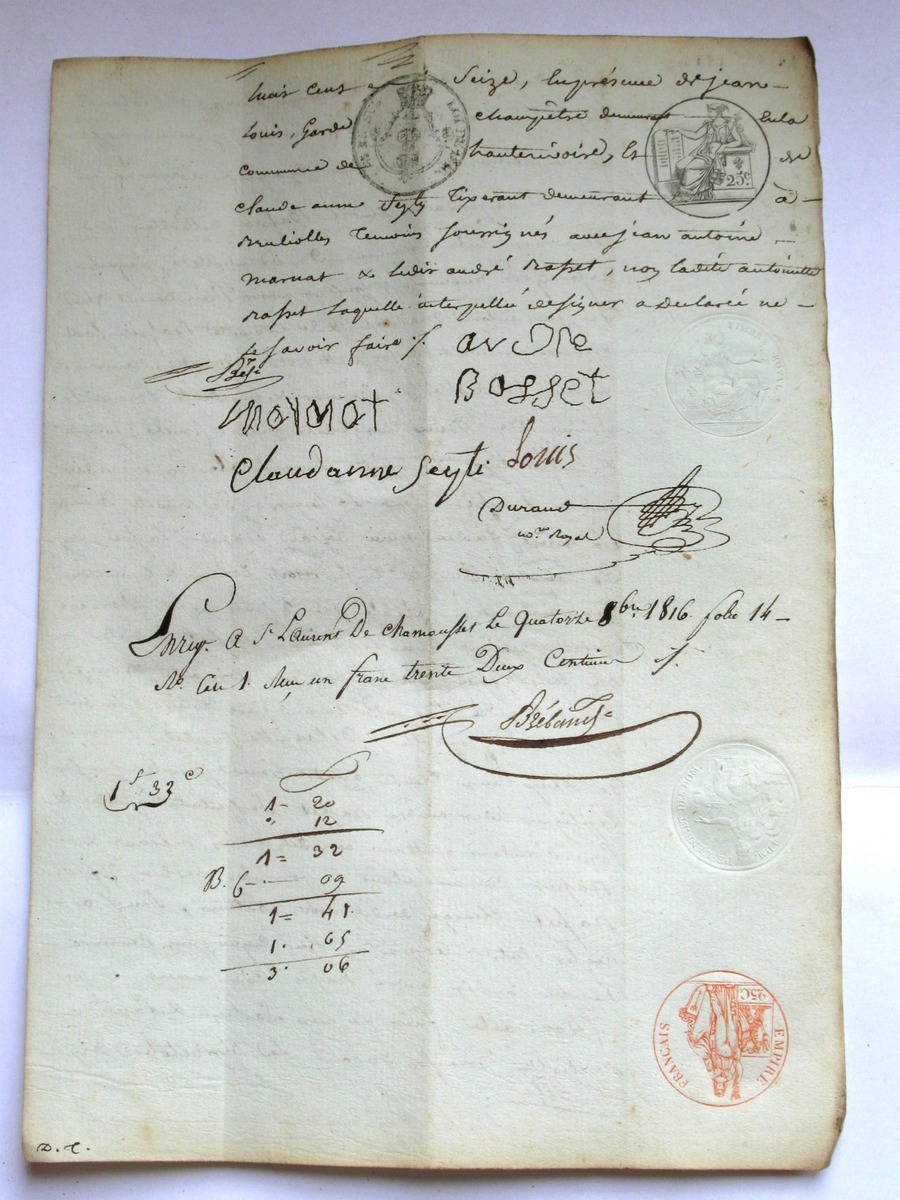 huit cent et Seize, En présence de jean
Louis, Garde champêtre demeurant en la
commune de hauterivoire, Et de
claude anne Seyty Tixerant demeurant à
Brulliolles Temoins Soussignés avec jean antoine
marnat & ledit andré Basset, non ladite antoinette
Basset Laquelle interpellée de signer a Déclaré ne
le savoir faire ./.
andre
Basset
marnat
Claudanne Seyti Louis
Durand
no.re Royal
Enreg. A St Laurent De chamousset Le quatorze 8bre 1816 folio 14
Ro. Case 1. Reçu un franc trente Deux Centimes ./.
1f 32c
1 20
" 12
1 = 32
B. 6 09
1 = 41.
1. 65
3. 06
25c.
TIMBRE ROYAL
EMPIRE
FRANÇAIS
25C
D. T.